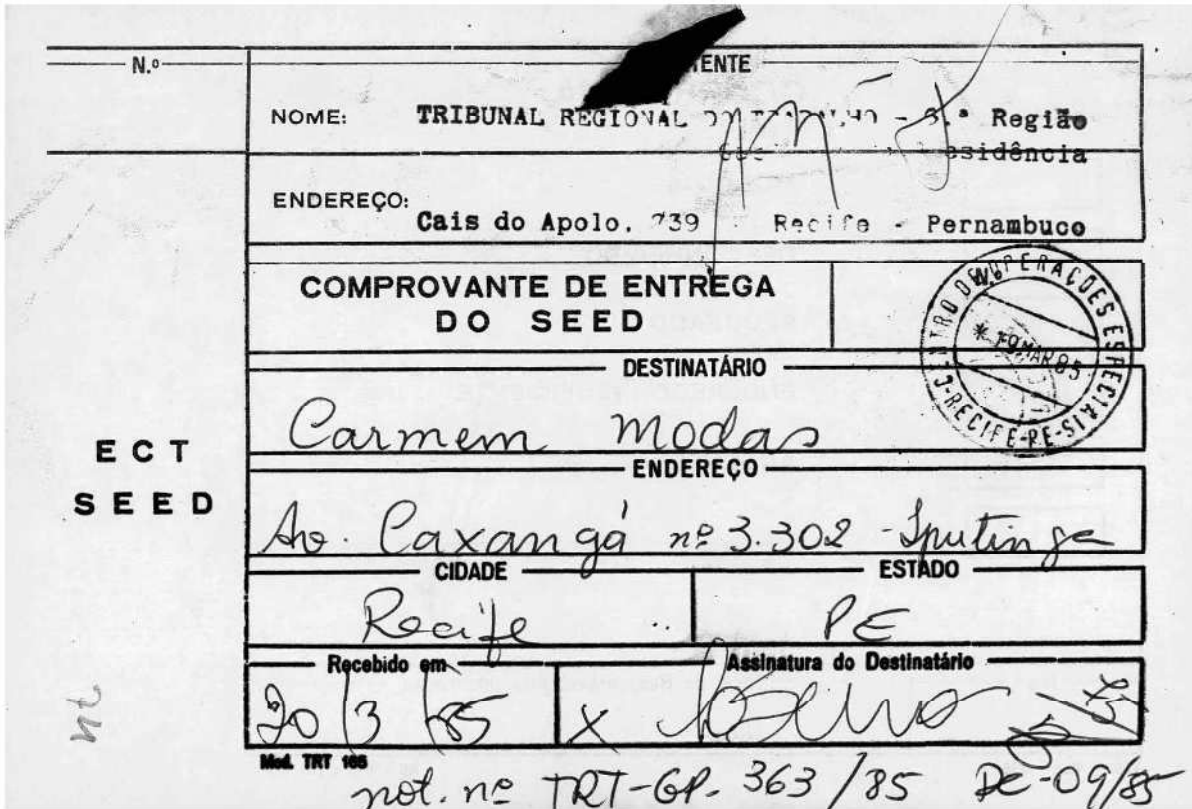 N.º
NOME: TRIBUNAL REGIONAL - 6.ª Região
ENDEREÇO: Cais do Apolo, 739 - Recife - Pernambuco
COMPROVANTE DE ENTREGA
DO SEED
CENTRO DE OPERAÇÕES ESPECIAIS
19 MAR 85
RECIFE-PE
DESTINATÁRIO
Carmem Modas
ECT
SEED
ENDEREÇO
Av. Caxangá nº 3.302 - Iputinga
CIDADE
ESTADO
Recife
PE
Recebido em
Assinatura do Destinatário
20/3/85
X
Mod. TRT 166
not. nº TRT-GP. 363/85 DC-09/85